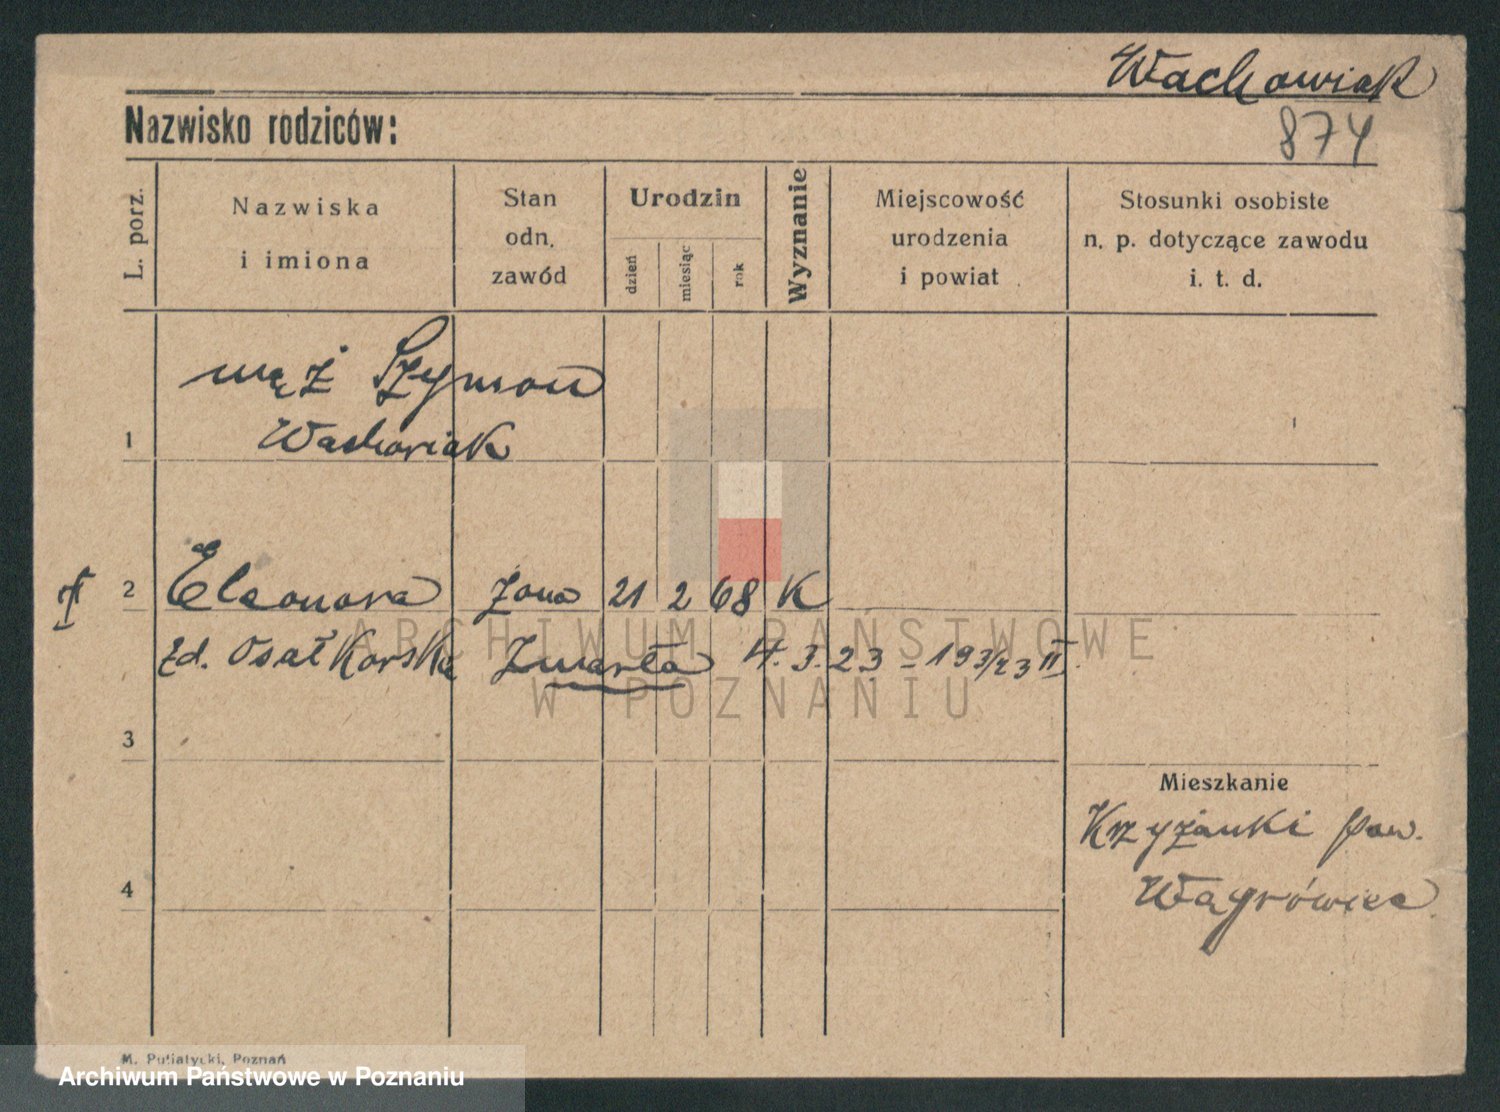 Wachowiak
Nazwisko rodziców:
874
L. porz.
Nazwiska
i imiona
Stan
odn.
zawód
Urodzin
dzień
miesiąc
rok
Wyznanie
Miejscowość
urodzenia
i powiat
Stosunki osobiste
n. p. dotyczące zawodu
i. t. d.
mąż Szymon
1 Wachowiak
2 Eleonora żona 21 2 68 K
zd. Osałkorska Zmarła 4.3.23 - 193/23 II.
3
Mieszkanie
Krzyżanki pow.
4 Wągrówiec
ARCHIWUM PAŃSTWOWE
W POZNANIU
M. Putiatycki, Poznań
Archiwum Państwowe w Poznaniu